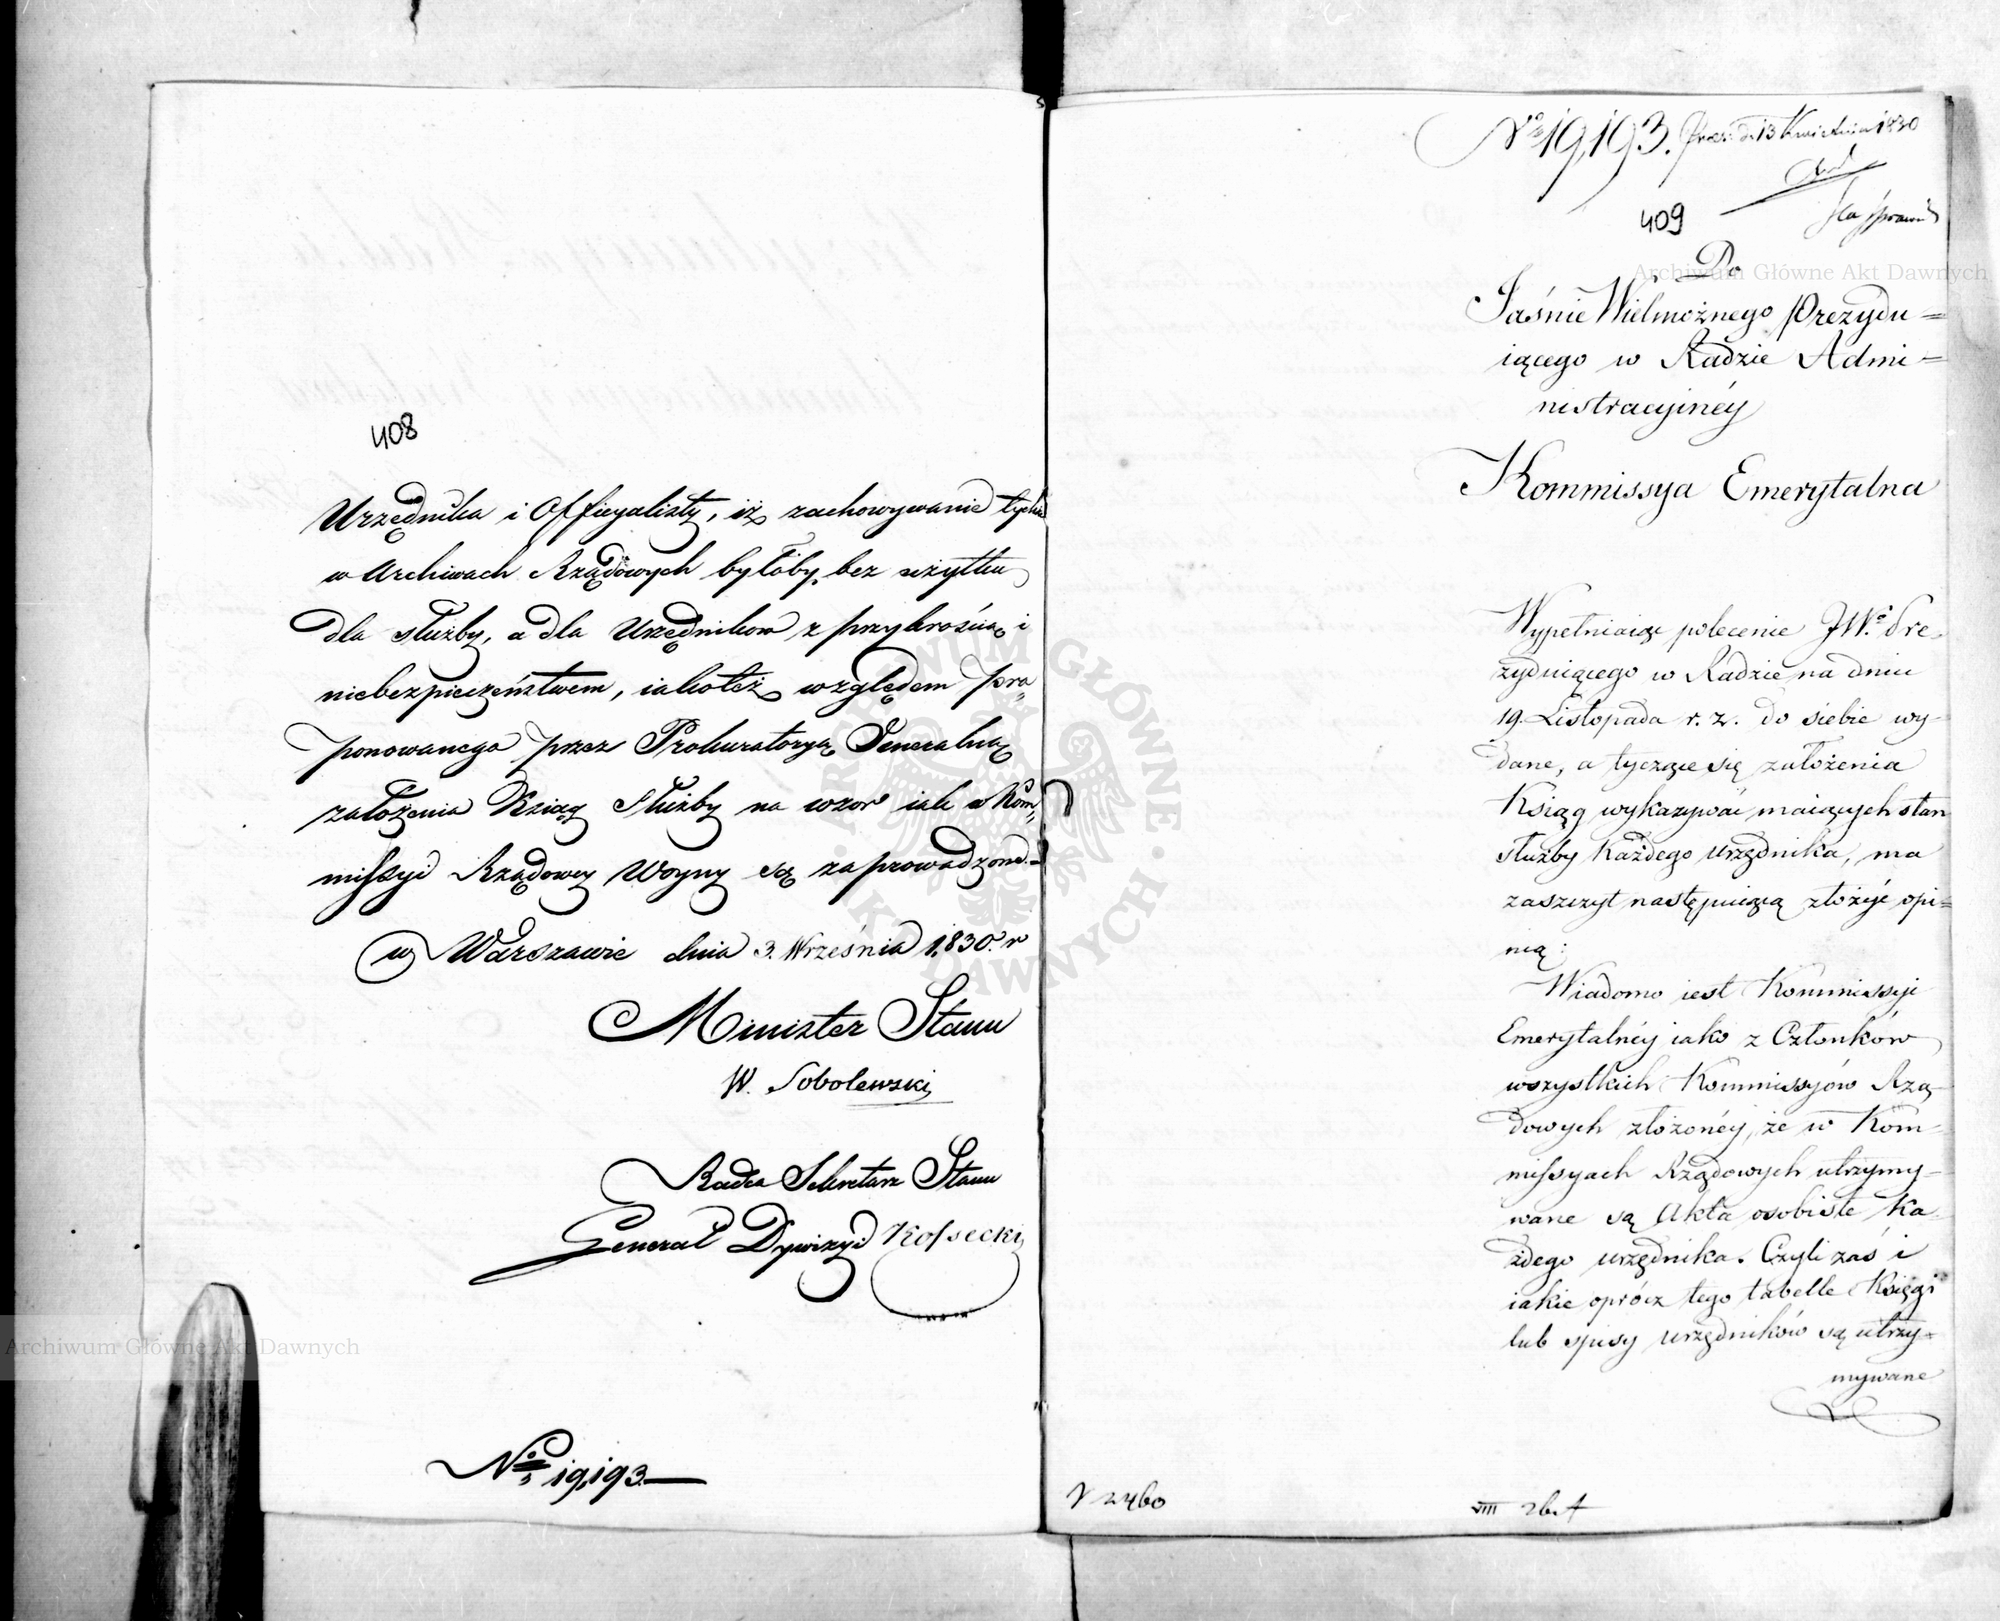 408
Urzędnika i Officyalisty, iż zachowywanie tychże
w Archiwach Rządowych byłoby bez użytku
dla służby, a dla Urzędników z przykrością i
niebezpieczeństwem, iakoteż względem pro„
ponowanego przez Prokuratoryą Generalną
założenia Xsiąg Służby na wzór iak w Kom„
missyi Rządowey Woyny są zaprowadzone.
w Warszawie dnia 3. Września 1,830. r
Minister Stanu
W. Sobolewski
Radca Sekretarz Stanu
Generał Dywizyi Kossecki
No 19,193.
No 19,193. Præs: d. 13 Kwietnia 1830
409
Do
Jaśnie Wielmożnego Prezydu=
iącego w Radzie Admi=
nistracyinéy
Kommissya Emerytalna
Wypełniaiąc polecenie JWo. Pre-
zyduiącego w Radzie na dniu
19. Listopada r. z. do siebie wy-
dane, a tyczące się założenia
Ksiąg wykazywać maiących stan
służby każdego urzędnika, ma
zaszczyt następuiącą złożyć opi=
nią:
Wiadomo iest Kommissyi
Emerytalnéy iako z Członków
wszystkich Kommissyów Rzą-
dowych złożonéy, że w Kom-
missyach Rządowych utrzymy-
wane są Akta osobiste ka-
żdego urzędnika. Czyli zaś i
iakie oprócz tego tabelle Księgi
lub spisy urzędników są utrzy=
mywane
N 2460
VIII
Archiwum Główne Akt Dawnych
Archiwum Główne Akt Dawnych
ARCHIWUM GŁÓWNE · AKT DAWNYCH ·